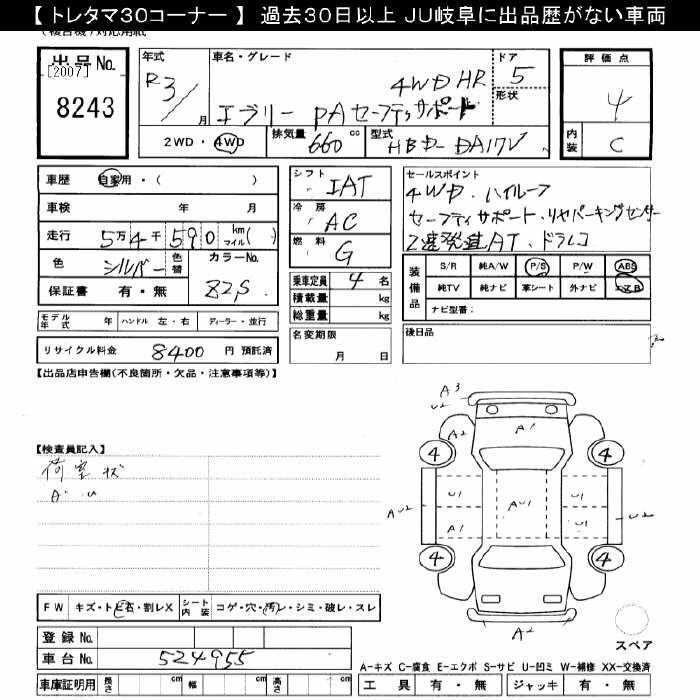 【 トレタマ30コーナー 】 過去30日以上 JU岐阜に出品歴がない車両
出品No.
[2007]
8243
年式
R3/
月
車名・グレード
4WD HR
エブリー PA セーフティサポート
ドア
5
形状
2WD・4WD
排気量
660
cc
型式
HBD-DA17V
評価点
4
内装
C
車歴
自家用・( )
車検
年 月
走行
5万4千590 km マイル( )
色
シルバー
色替
カラーNo.
Z2S
保証書
有・無
シフト
IAT
冷房
AC
燃料
G
乗車定員
4 名
積載量
kg
総重量
kg
セールスポイント
4WD.ハイルーフ
セーフティサポート.リヤパーキングセンサー
2速発進AT、ドラレコ
装備品
S/R 純A/W P/S P/W ABS
純TV 純ナビ 革シート 外ナビ エアB
ナビ型番:
モデル年式
年
ハンドル 左・右
ディーラー・並行
リサイクル料金
8400
円 預託済
名変期限
月 日
後日品
【出品店申告欄(不良箇所・欠品・注意事項等)】
【検査員記入】
荷室 ズ
A・U
A3
U2
A2
A1
4
4
U1
AU1
U1
AU2
U2
A1
4
4
A2
スペア
FW
キズ・ト ビ石・割レX
シート内装
コゲ・穴・汚レ・シミ・破レ・スレ
登録No.
車台No.
524955
車庫証明用
長さ
cm
幅
cm
高さ
cm
A-キズ C-腐食 E-エクボ S-サビ U-凹ミ W-補修 XX-交換済
工具 有・無
ジャッキ 有・無